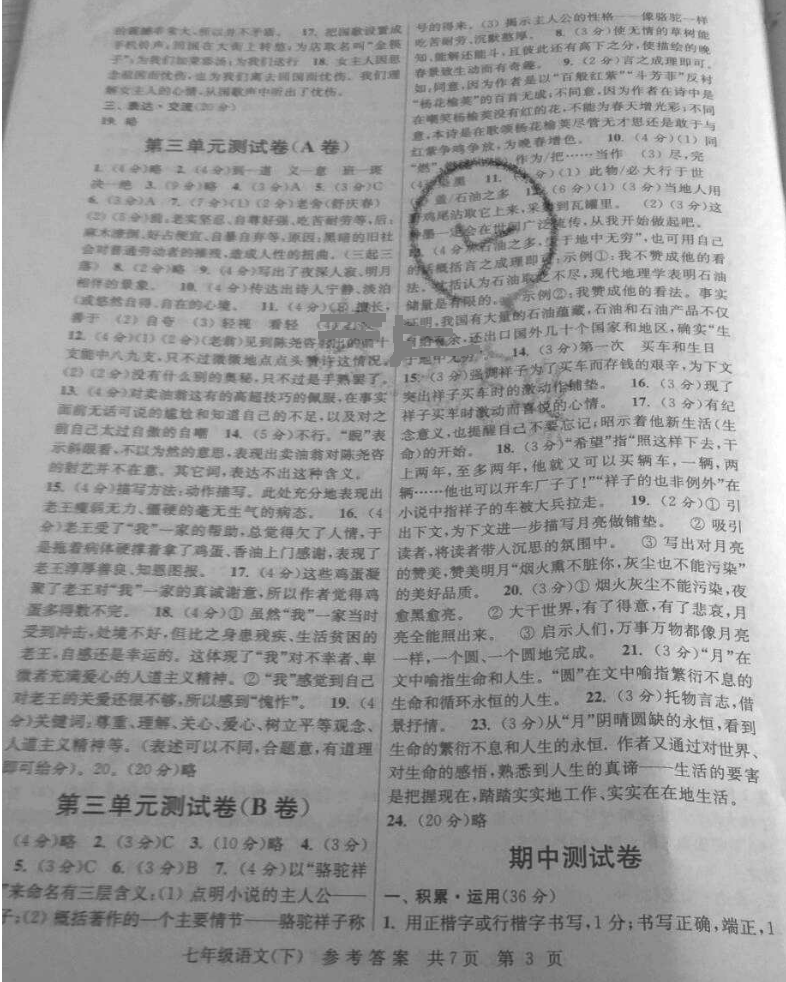 的震撼非常大,所以并不矛盾。 17. 把国歌设置成
手机铃声;回国在大街上转悠;为店取名叫“金筷
子”;为我们加菜那汤;为我们送行 18. 女主人因思
念祖国而忧伤,也为我们离去回国而忧伤。我们理
解女主人的心情,从国歌声中听出了忧伤。
三、表达·交流(20分)
19. 略
第三单元测试卷(A卷)
1. (4分)略 2. (4分)到一道 义一意 班一斑
决一绝 3. (9分)略 4. (3分)A 5. (3分)C
6. (3分)A 7. (7分)(1)(2分)老舍(舒庆春)
(2)(5分)前:老实坚忍、自尊好强、吃苦耐劳等,后:
麻木潦倒、好占便宜、自暴自弃等,原因:黑暗的旧社
会对普通劳动者的摧残,造成人性的扭曲。(三起三
落) 8. (2分)略 9. (4分)写出了夜深人寂、明月
相伴的景象。 10. (4分)传达出诗人宁静、淡泊
(或悠然自得、自在的心境。 11. (4分)(1)擅长,
善于 (2)自夸 (3)轻视 看轻
12. (4分)(1)(2分)(老翁)见到陈尧咨射出的箭十
支能中八九支,只不过微微地点点头赞许这情况。
(2)(2分)没有什么别的奥秘,只不过是手熟罢了。
13. (4分)对卖油翁这有的高超技巧的佩服,在事实
面前无话可说的尴尬和知道自己的不足,以及对之
前自己太过自傲的自嘲 14. (5分)不行。“睨”表
示斜眼看,不以为然的意思,表现出卖油翁对陈尧咨
的射艺并不在意。其它词,表达不出这种含义。
15. (4分)描写方法:动作描写。此处充分地表现出
老王瘦弱无力、僵硬的毫无生气的病态。 16. (4
分)老王受了“我”一家的帮助,总觉得欠了人情,于
是拖着病体硬撑着拿了鸡蛋、香油上门感谢,表现了
老王淳厚善良、知恩图报。 17. (4分)这些鸡蛋凝
聚了老王对“我”一家的真诚谢意,所以作者觉得鸡
蛋多得数不完。 18. (4分)① 虽然“我”一家当时
受到冲击,处境不好,但比之身患残疾、生活贫困的
老王,自感还是幸运的。这体现了“我”对不幸者、卑
微者充满爱心的人道主义精神。②“我”感觉到自己
对老王的关爱还很不够,所以感到“愧怍”。 19. (4
分)关键词:尊重、理解、关心、爱心、树立平等观念、
人道主义精神等。(表述可以不同,合题意,有道理
即可给分)。20。(20分)略
第三单元测试卷(B卷)
(4分)略 2. (3分)C 3. (10分)略 4. (3分)
5. (3分)C 6. (3分)B 7. (4分)以“骆驼祥
”来命名有三层含义:(1)点明小说的主人公——
子;(2)概括著作的一个主要情节——骆驼祥子称
号的得来。(3)揭示主人公的性格——像骆驼一样
吃苦耐劳、沉默憨厚。 8. (3分)使无情的草树能
知,能解还能斗,且彼此还有高下之分,使描绘的晚
春景致生动而有奇趣。 9. (2分)言之成理即可。
如:同意,因为作者是以“百般红紫”“斗芳菲”反衬
“杨花榆荚”的百背无成;不同意,因为作者在诗中是
在嘲笑杨榆荚没有红的花,不能为春天增光彩;不同
意,本诗是在歌颂杨花榆荚尽管无才思还是敢于与
红紫争鸣争放,为晚春增色。 10. (4分)(1)同
“燃” 作为/把……当作 (3)尽,完
墨 11. 分)(1)此物/必大行于世
盖/石油之多 (6分)(1)(3分)当地人用
野鸡尾沾取它上来,采集到瓦罐里。 (2)(3分)这
种墨一定会在世间广泛流传,从我开始做起吧。
(4分)“石油之多,生于地中无穷”,也可用自己
的话概括言之成理即可。示例①:我不赞成他的看
法。沈括认为石油取之不尽,现代地理学表明石油
储量是有限的。 示例②:我赞成他的看法。事实
证明,我国有大量的石油蕴藏,石油和石油产品不仅
有余,还出口国外几十个国家和地区,确实“生
于地中无穷”。 14. (3分)第一次 买车和生日
15. (3分)强调祥子为了买车而存钱的艰辛,为下文
突出祥子买车时的激动作铺垫。 16. (3分)现了
祥子买车时激动而喜悦的心情。 17. (3分)有纪
念意义,也提醒自己不要忘记;昭示着他新生活(生
命)的开始。 18. (3分)“希望”指“照这样下去,干
上两年,至多两年,他就又可以买辆车,一辆,两
辆……他也可以开车厂子了!”“祥子的也非例外”在
小说中指祥子的车被大兵拉走。 19. (2分)① 引
出下文,为下文进一步描写月亮做铺垫。 ② 吸引
读者,将读者带入沉思的氛围中。 ③ 写出对月亮
的赞美,赞美明月“烟火熏不脏你,灰尘也不能污染”
的美好品质。 20. (3分)① 烟火灰尘不能污染,夜
愈黑愈亮。 ② 大千世界,有了得意,有了悲哀,月
亮全能照出来。 ③ 启示人们,万事万物都像月亮
一样,一个圆、一个圆地完成。 21. (3分)“月”在
文中喻指生命和人生。“圆”在文中喻指繁衍不息的
生命和循环永恒的人生。 22. (3分)托物言志,借
景抒情。 23. (3分)从“月”阴晴圆缺的永恒,看到
生命的繁衍不息和人生的永恒. 作者又通过对世界、
对生命的感悟,熟悉到人生的真谛——生活的要害
是把握现在,踏踏实实地工作、实实在在地生活。
24. (20分)略
期中测试卷
一、积累·运用(36分)
1. 用正楷字或行楷字书写,1分;书写正确,端正,1
七年级语文(下) 参考答案 共7页 第3页